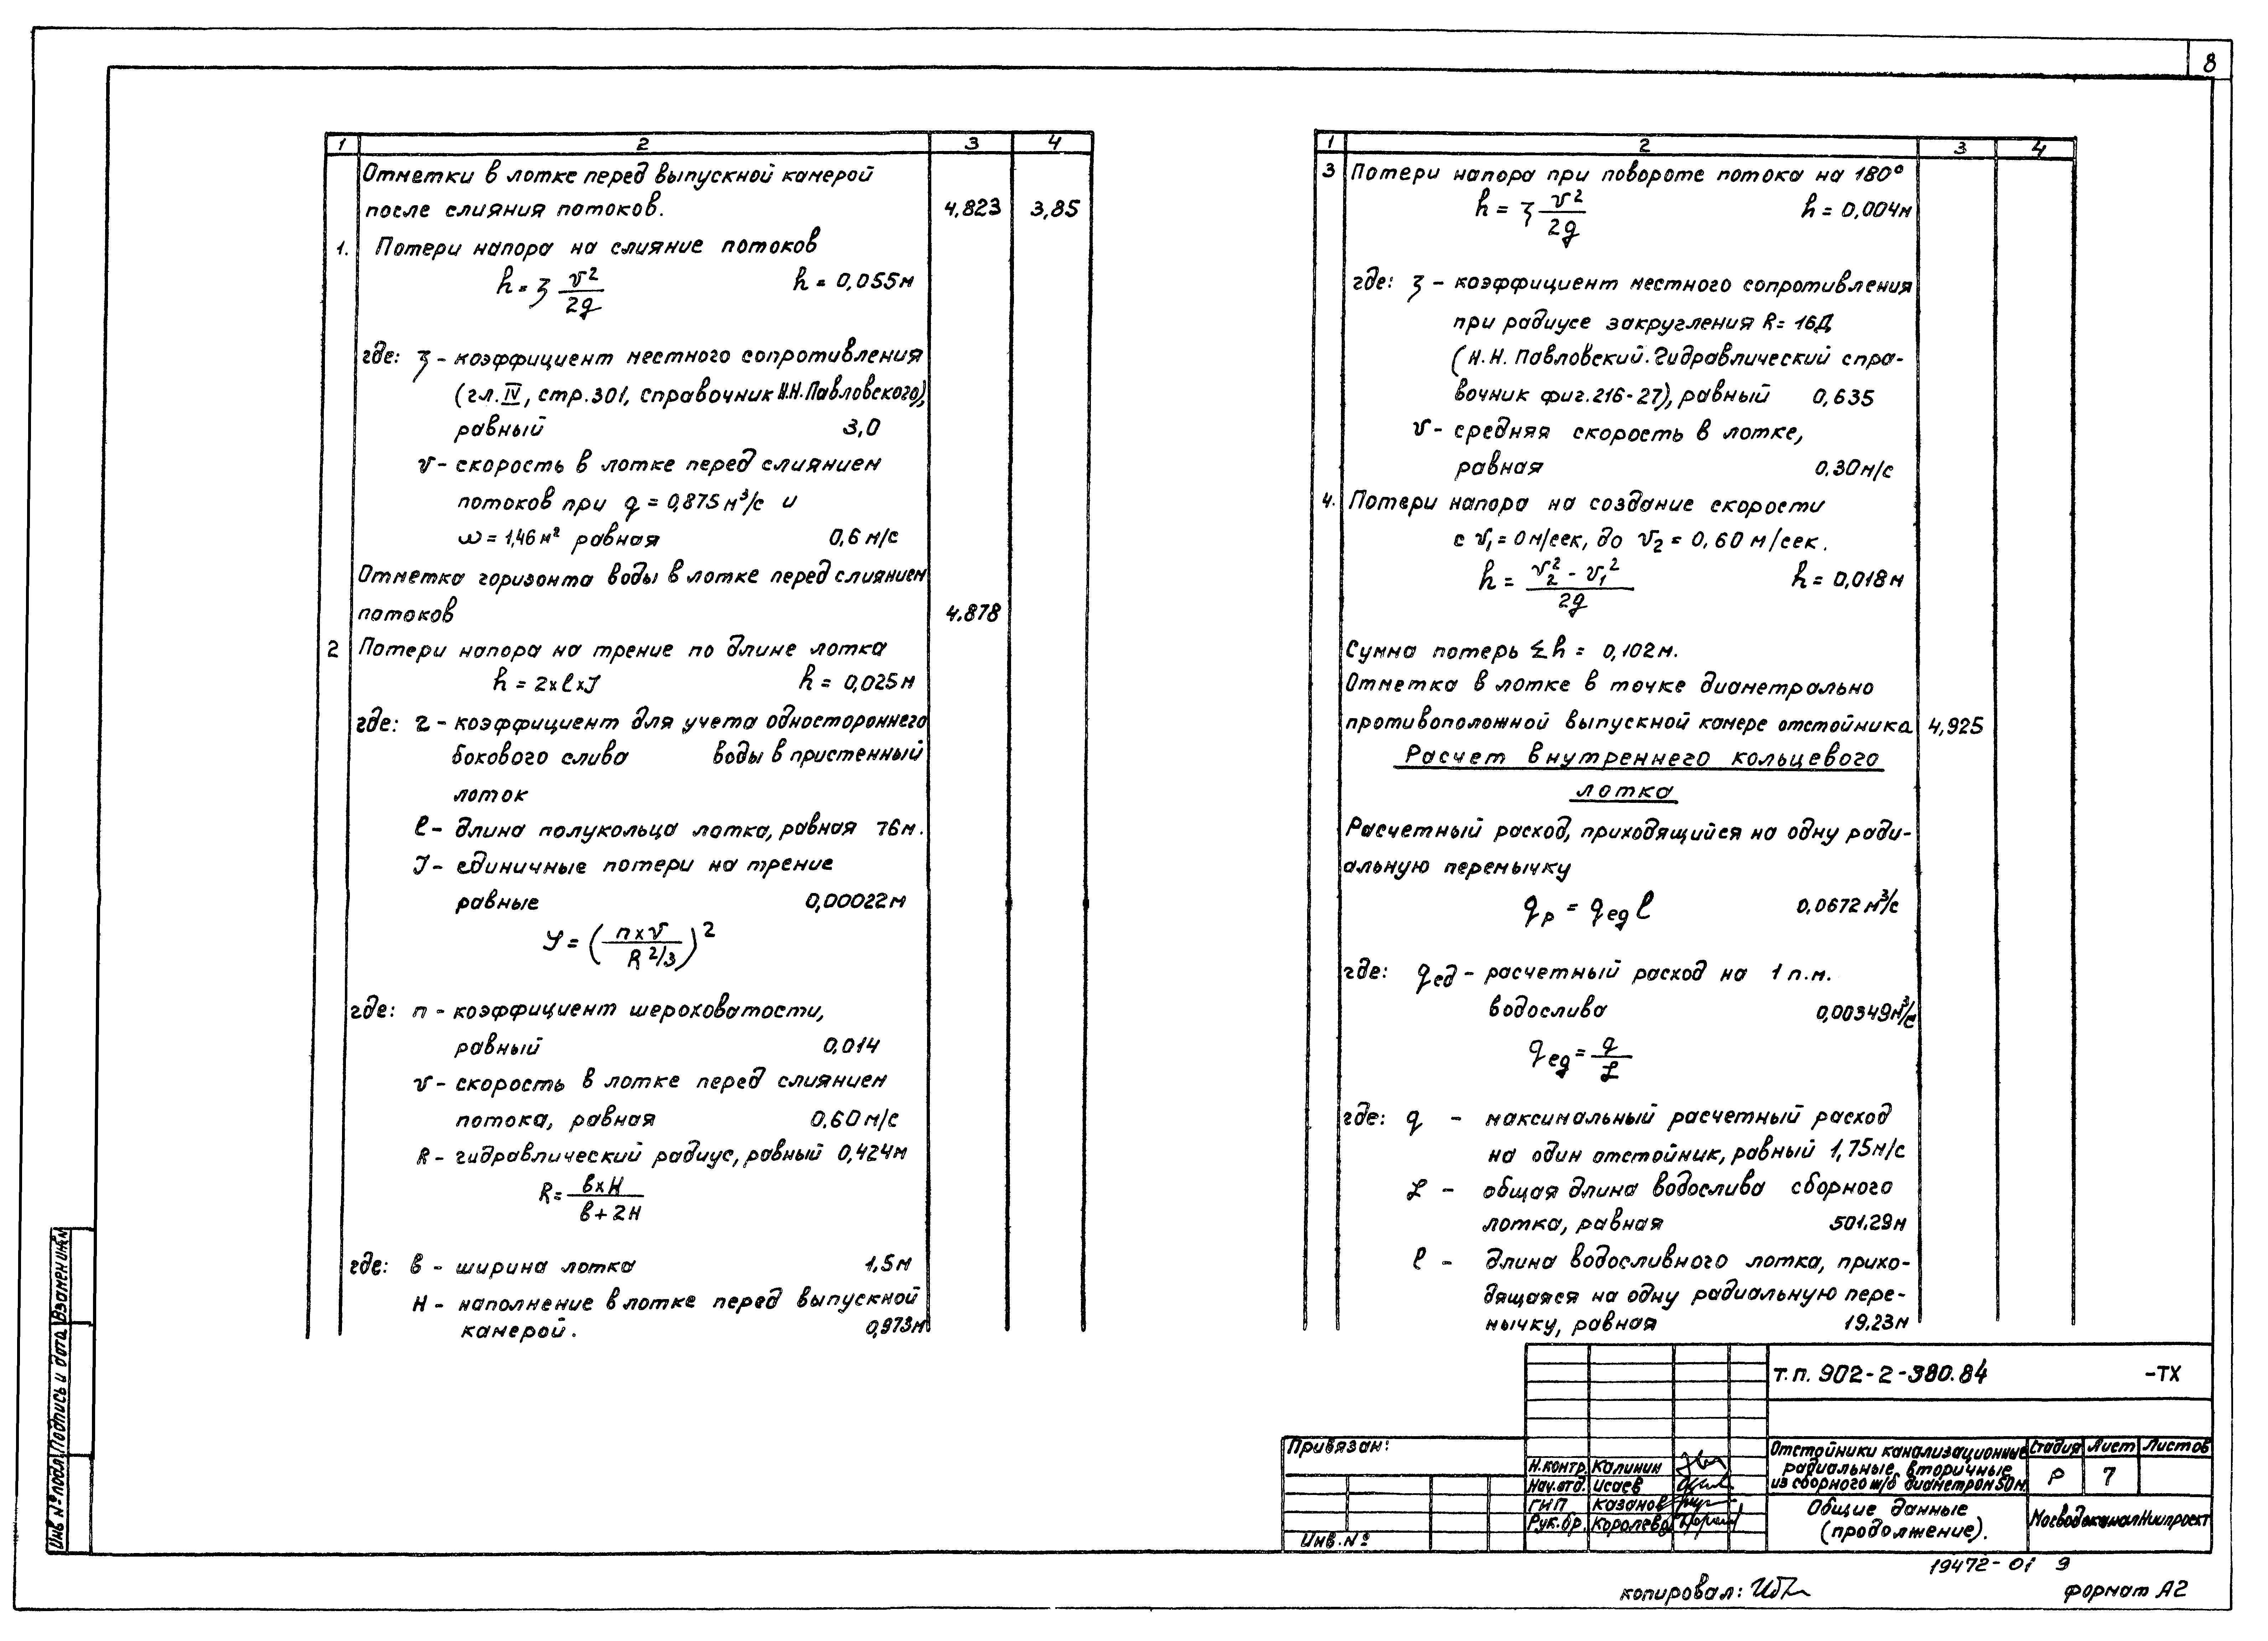 8
1 2 3 4
Отметки в лотке перед выпускной камерой
после слияния потоков. 4,823 3,85
1. Потери напора на слияние потоков
h = ξ v²/2g h = 0,055м
где: ξ - коэффициент местного сопротивления
(гл. IV, стр. 301, справочник Н.Н. Павловского),
равный 3,0
v - скорость в лотке перед слиянием
потоков при q = 0,875 м³/с и
ω = 1,46 м² равная 0,6 м/с
Отметка горизонта воды в лотке перед слиянием
потоков 4.878
2 Потери напора на трение по длине лотка
h = 2×l×J h = 0,025м
где: 2 - коэффициент для учета одностороннего
бокового слива воды в пристенный
лоток
l - длина полукольца лотка, равная 76м.
J - единичные потери на трение
равные 0,00022м
J = (n×v/R^2/3)²
где: n - коэффициент шероховатости,
равный 0,014
v - скорость в лотке перед слиянием
потока, равная 0,60 м/с
R - гидравлический радиус, равный 0,424м
R = в×Н/в+2Н
где: в - ширина лотка 1,5м
Н - наполнение в лотке перед выпускной
камерой. 0,973м
1 2 3 4
3 Потери напора при повороте потока на 180°
h = ξ v²/2g h = 0,004м
где: ξ - коэффициент местного сопротивления
при радиусе закругления R = 16Д
(Н.Н. Павловский. Гидравлический спра-
вочник фиг. 216-27), равный 0,635
v - средняя скорость в лотке,
равная 0.30м/с
4. Потери напора на создание скорости
с v₁ = 0 м/сек, до v₂ = 0,60 м/сек.
h = v₂² - v₁²/2g h = 0,018м
Сумма потерь Σh = 0,102м.
Отметка в лотке в точке диаметрально
противоположной выпускной камере отстойника 4,925
Расчет внутреннего кольцевого
лотка
Расчетный расход, приходящийся на одну ради-
альную перемычку
qр = qед l 0,0672 м³/с
где: qед - расчетный расход на 1 п.м.
водослива 0,00349м³/с
qед = q/L
где: q - максимальный расчетный расход
на один отстойник, равный 1,75м/с
L - общая длина водослива сборного
лотка, равная 501.29м
l - длина водосливного лотка, прихо-
дящаяся на одну радиальную пере-
мычку, равная 19.23м
т.п. 902-2-380.84 -ТХ
Привязан:
Инв. №
Н.контр. Калинин
Нач.отд. Исаев
ГИП Казанов
Рук.бр. Королева
Отстойники канализационные
радиальные вторичные
из сборного ж/б диаметром 50м.
Стадия Лист Листов
Р 7
Общие данные
(продолжение).
МосводоканалНиипроект
19472-01 9
копировал:
формат А2
Инв № подл. Подпись и дата Взамен инв.№